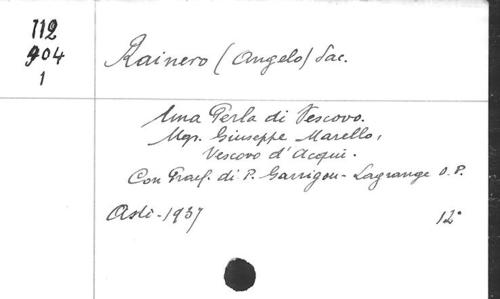 112
904
1
Rainero (Angelo) Sac.
Una Perla di Vescovo.
Mgr. Giuseppe Marello,
Vescovo d'Acqui.
Con Praef. di P. Garrigou-Lagrange O.P.
Asti-1937
12°